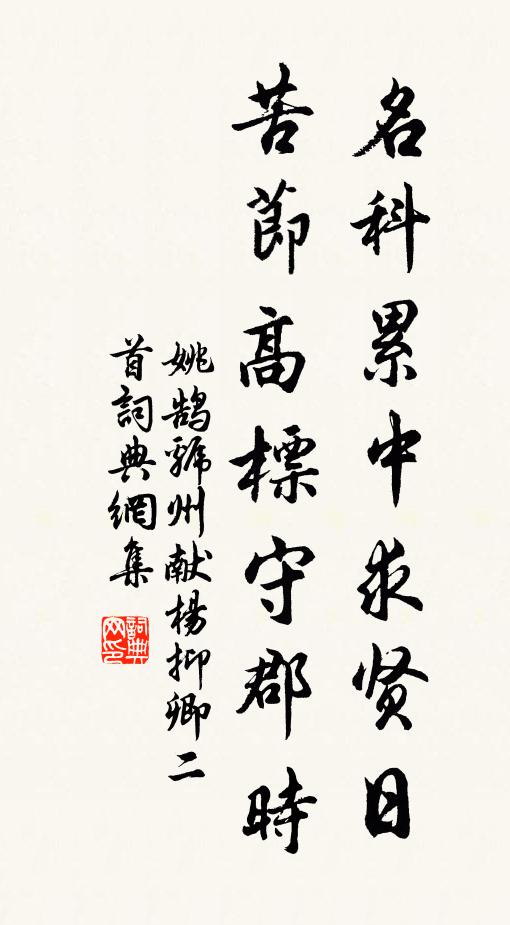 名科累中求贤日
苦節高標守郡時
姚鵠虢州献楊抑卿二
首詞典網集
詞典网印